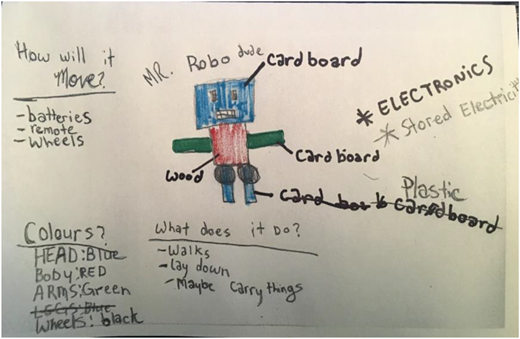 How will it
Move?
- batteries
- remote
- wheels
MR. Robo dude
cardboard
* ELECTRONICS
* Stored Electricity
Cardboard
Wood
Plastic
Card board Cardboard
Colours?
HEAD: Blue
Body: RED
ARMS: Green
LEGS: Blue
Wheels: black
What does it Do?
- Walks
- Lay down
- Maybe Carry things